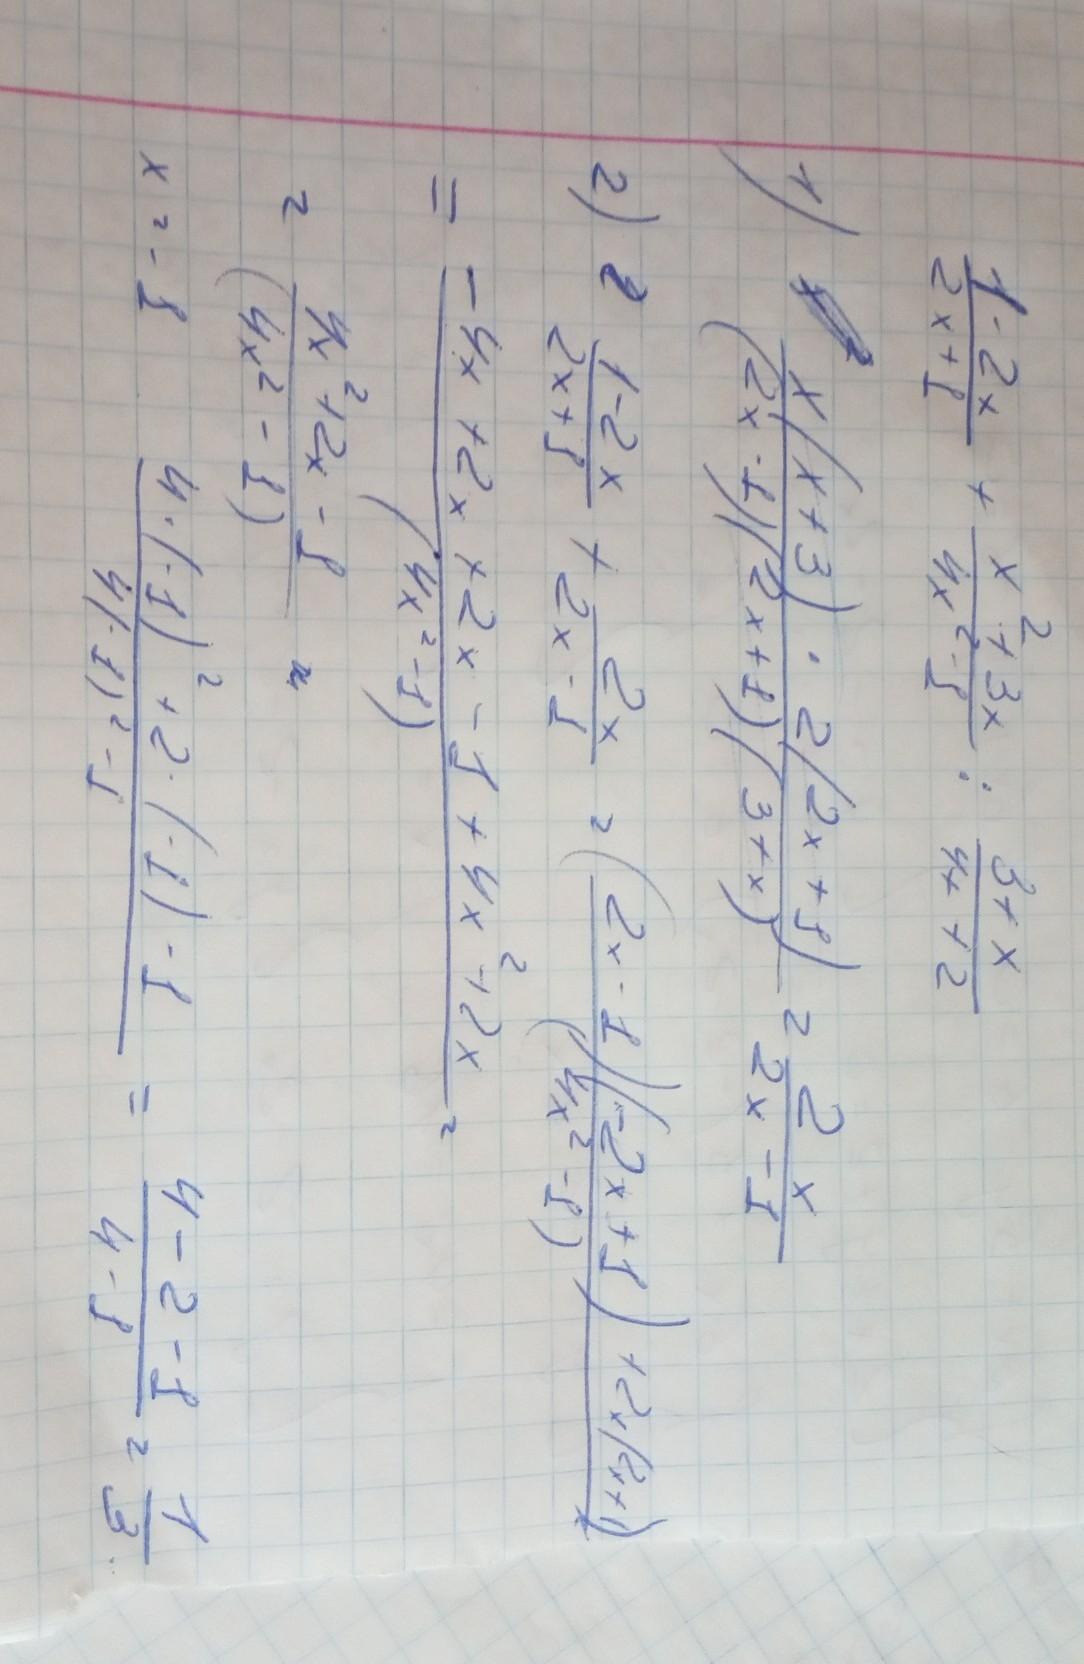 (1 - 2x)/(2x + 1) + (x² + 3x)/(4x² - 1) : (3 + x)/(4x + 2)
1) (x(x + 3) · 2(2x + 1))/((2x - 1)(2x + 1)(3 + x)) = 2x/(2x - 1)
2) (1 - 2x)/(2x + 1) + 2x/(2x - 1) = ((2x - 1)(-2x + 1) + 2x(2x + 1))/(4x² - 1)
= (-4x + 2x + 2x - 1 + 4x² + 2x)/(4x² - 1) =
= (4x² + 2x - 1)/(4x² - 1)
x = -1 (4 · (-1)² + 2 · (-1) - 1)/(4(-1)² - 1) = (4 - 2 - 1)/(4 - 1) = 1/3